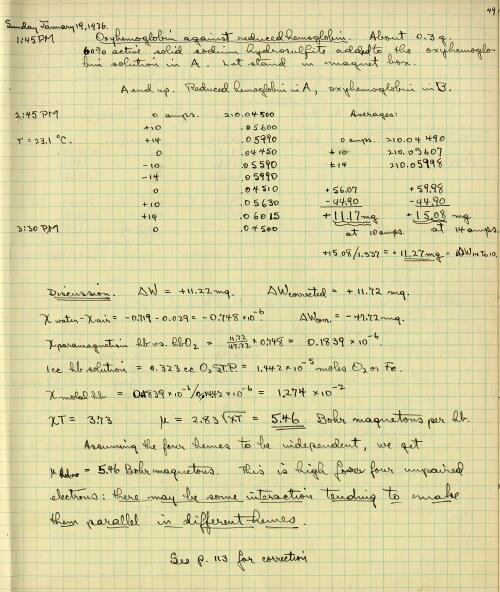 49
Sunday January 19, 1936.
1:45 PM Oxyhemoglobin against reduced hemoglobin. About 0.3 g.
60% active solid sodium hydrosulfite added to the oxyhemoglo-
bin solution in A. Let stand in magnet box.
A end up. Reduced hemoglobin in A, oxyhemoglobin in B.
2:45 PM 0 amps. 210.04500 Averages:
+10 .05600
T = 23.1 °C. +14 .05990 0 amps. 210.04490
0 .04450 ±10 210.05607
-10 .05590 ±14 210.05998
-14 .05990
0 .04510 +56.07 +59.98
+10 .05630 -44.90 -44.90
+14 .06015 +11.17 mg +15.08 mg
3:30 PM 0 .04500 at 10 amps. at 14 amps.
+15.08/1.337 = +11.27 mg = ΔW14 to 10.
Discussion. ΔW = +11.22 mg. ΔW corrected = +11.72 mg.
X water - X air = -0.719 - 0.029 = -0.748 × 10⁻⁶. ΔW = -47.72 mg.
X paramagnetism hb vs. hbO₂ = 11.72/47.72 × 0.748 = 0.1839 × 10⁻⁶.
1 cc hb solution = 0.323 cc O₂ S.T.P. = 1.442 × 10⁻⁵ moles O₂ or Fe.
X molal hb = 0.1839 × 10⁻⁶/0.1442 × 10⁻⁶ = 1.274 × 10⁻²
XT = 3.73 μ = 2.83√XT = 5.46 Bohr magnetons per hb.
Assuming the four hemes to be independent, we get
μ heme = 5.46 Bohr magnetons. This is high for four unpaired
electrons: there may be some interaction tending to make
them parallel in different hemes.
See p. 113 for correction